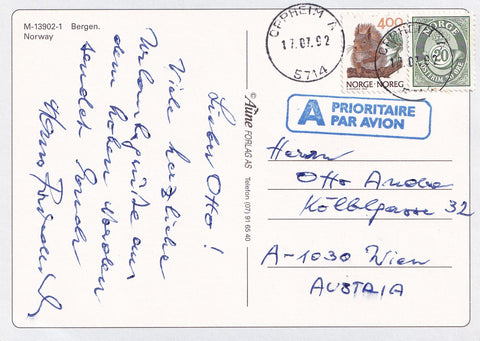 M-13902-1 Bergen.
Norway
Lieber Otto!
Viele herzliche
Urlaubsgrüße aus
dem hohen Norden
sendet
Hans
© Aune FORLAG AS Telefon (07) 91 65 40
OPPHEIM A
17.07.92
5714
400
NORGE·NOREG
OPPHEIM A
17.07.92
NORGE
20
A PRIORITAIRE
PAR AVION
Herrn
Otto Andre
Kölblgasse 32
A-1030 Wien
AUSTRIA